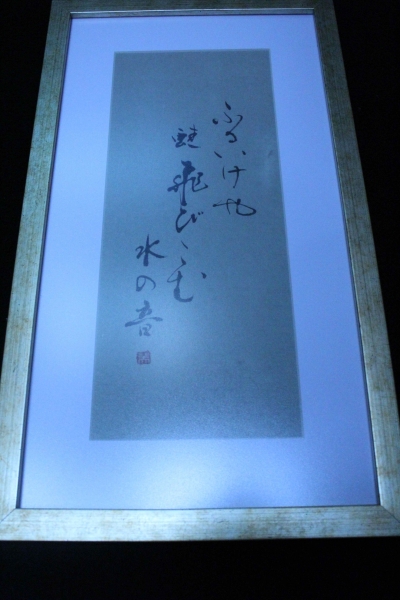 ふるいけや
蛙飛びこむ
水の音